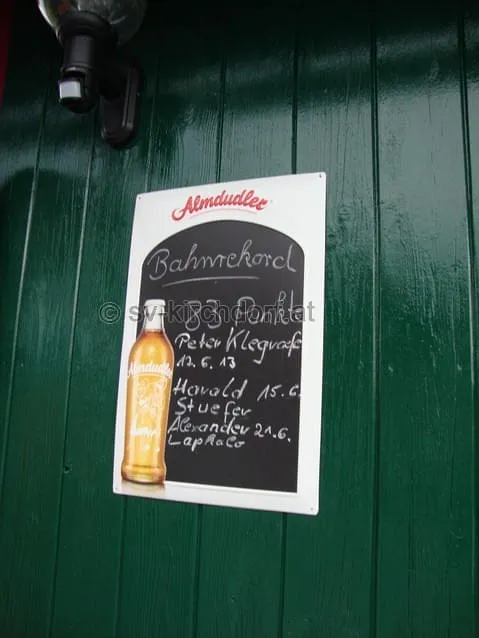 Almdudler
Bahnrekord
83 Punkte
© sv-kirchdorf.at
Peter Klegraefe
12.6.13
Almdudler
Harald 15.6.
Stuefer
Alexander 21.6.
Laphalo